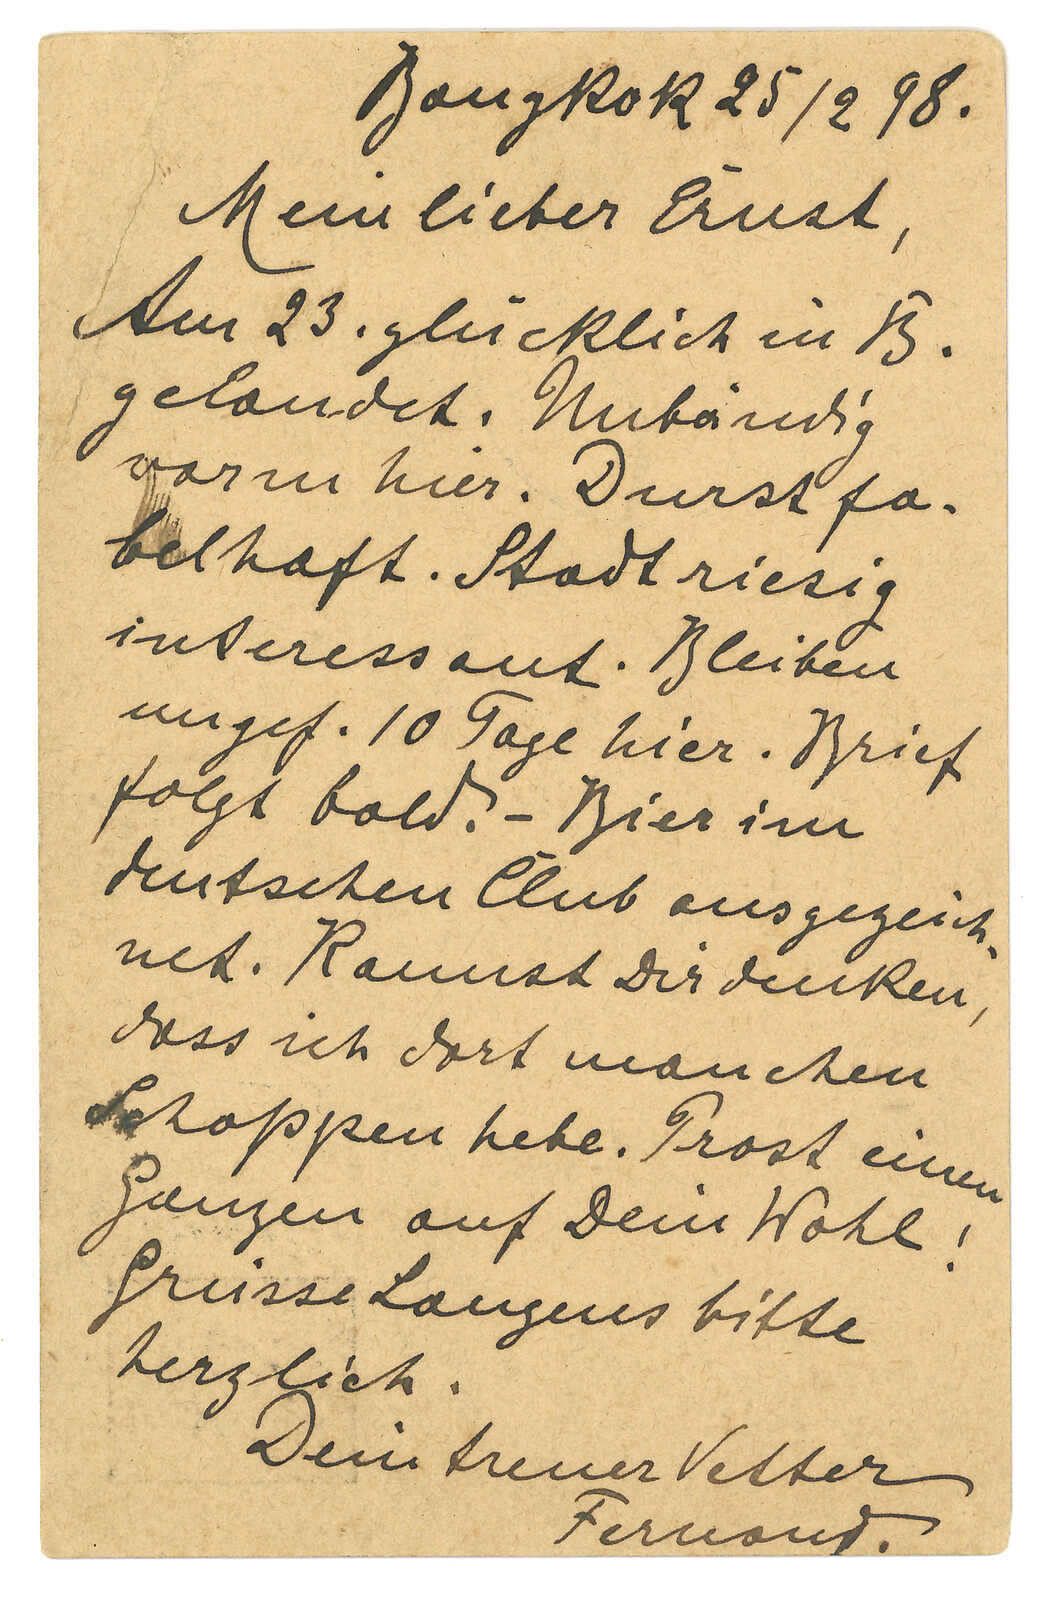 Bangkok 25/2 98.
Mein lieber Ernst,
Am 23. glücklich in B.
gelandet. Unbändig
warm hier. Durst fa-
belhaft. Stadt riesig
interessant. Bleiben
ungef. 10 Tage hier. Brief
folgt bald. - Bier im
deutschen Club ausgezeich-
net. Kannst Dir denken,
dass ich dort manchen
Schoppen hebe. Prost einen
Ganzen auf Dein Wohl!
Grüsse Langens bitte
herzlich.
Dein treuer Vetter
Fernand.